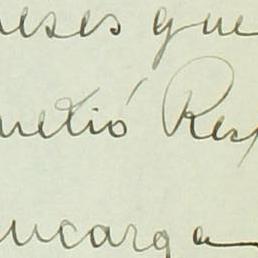 eses que
metió Res
encarga